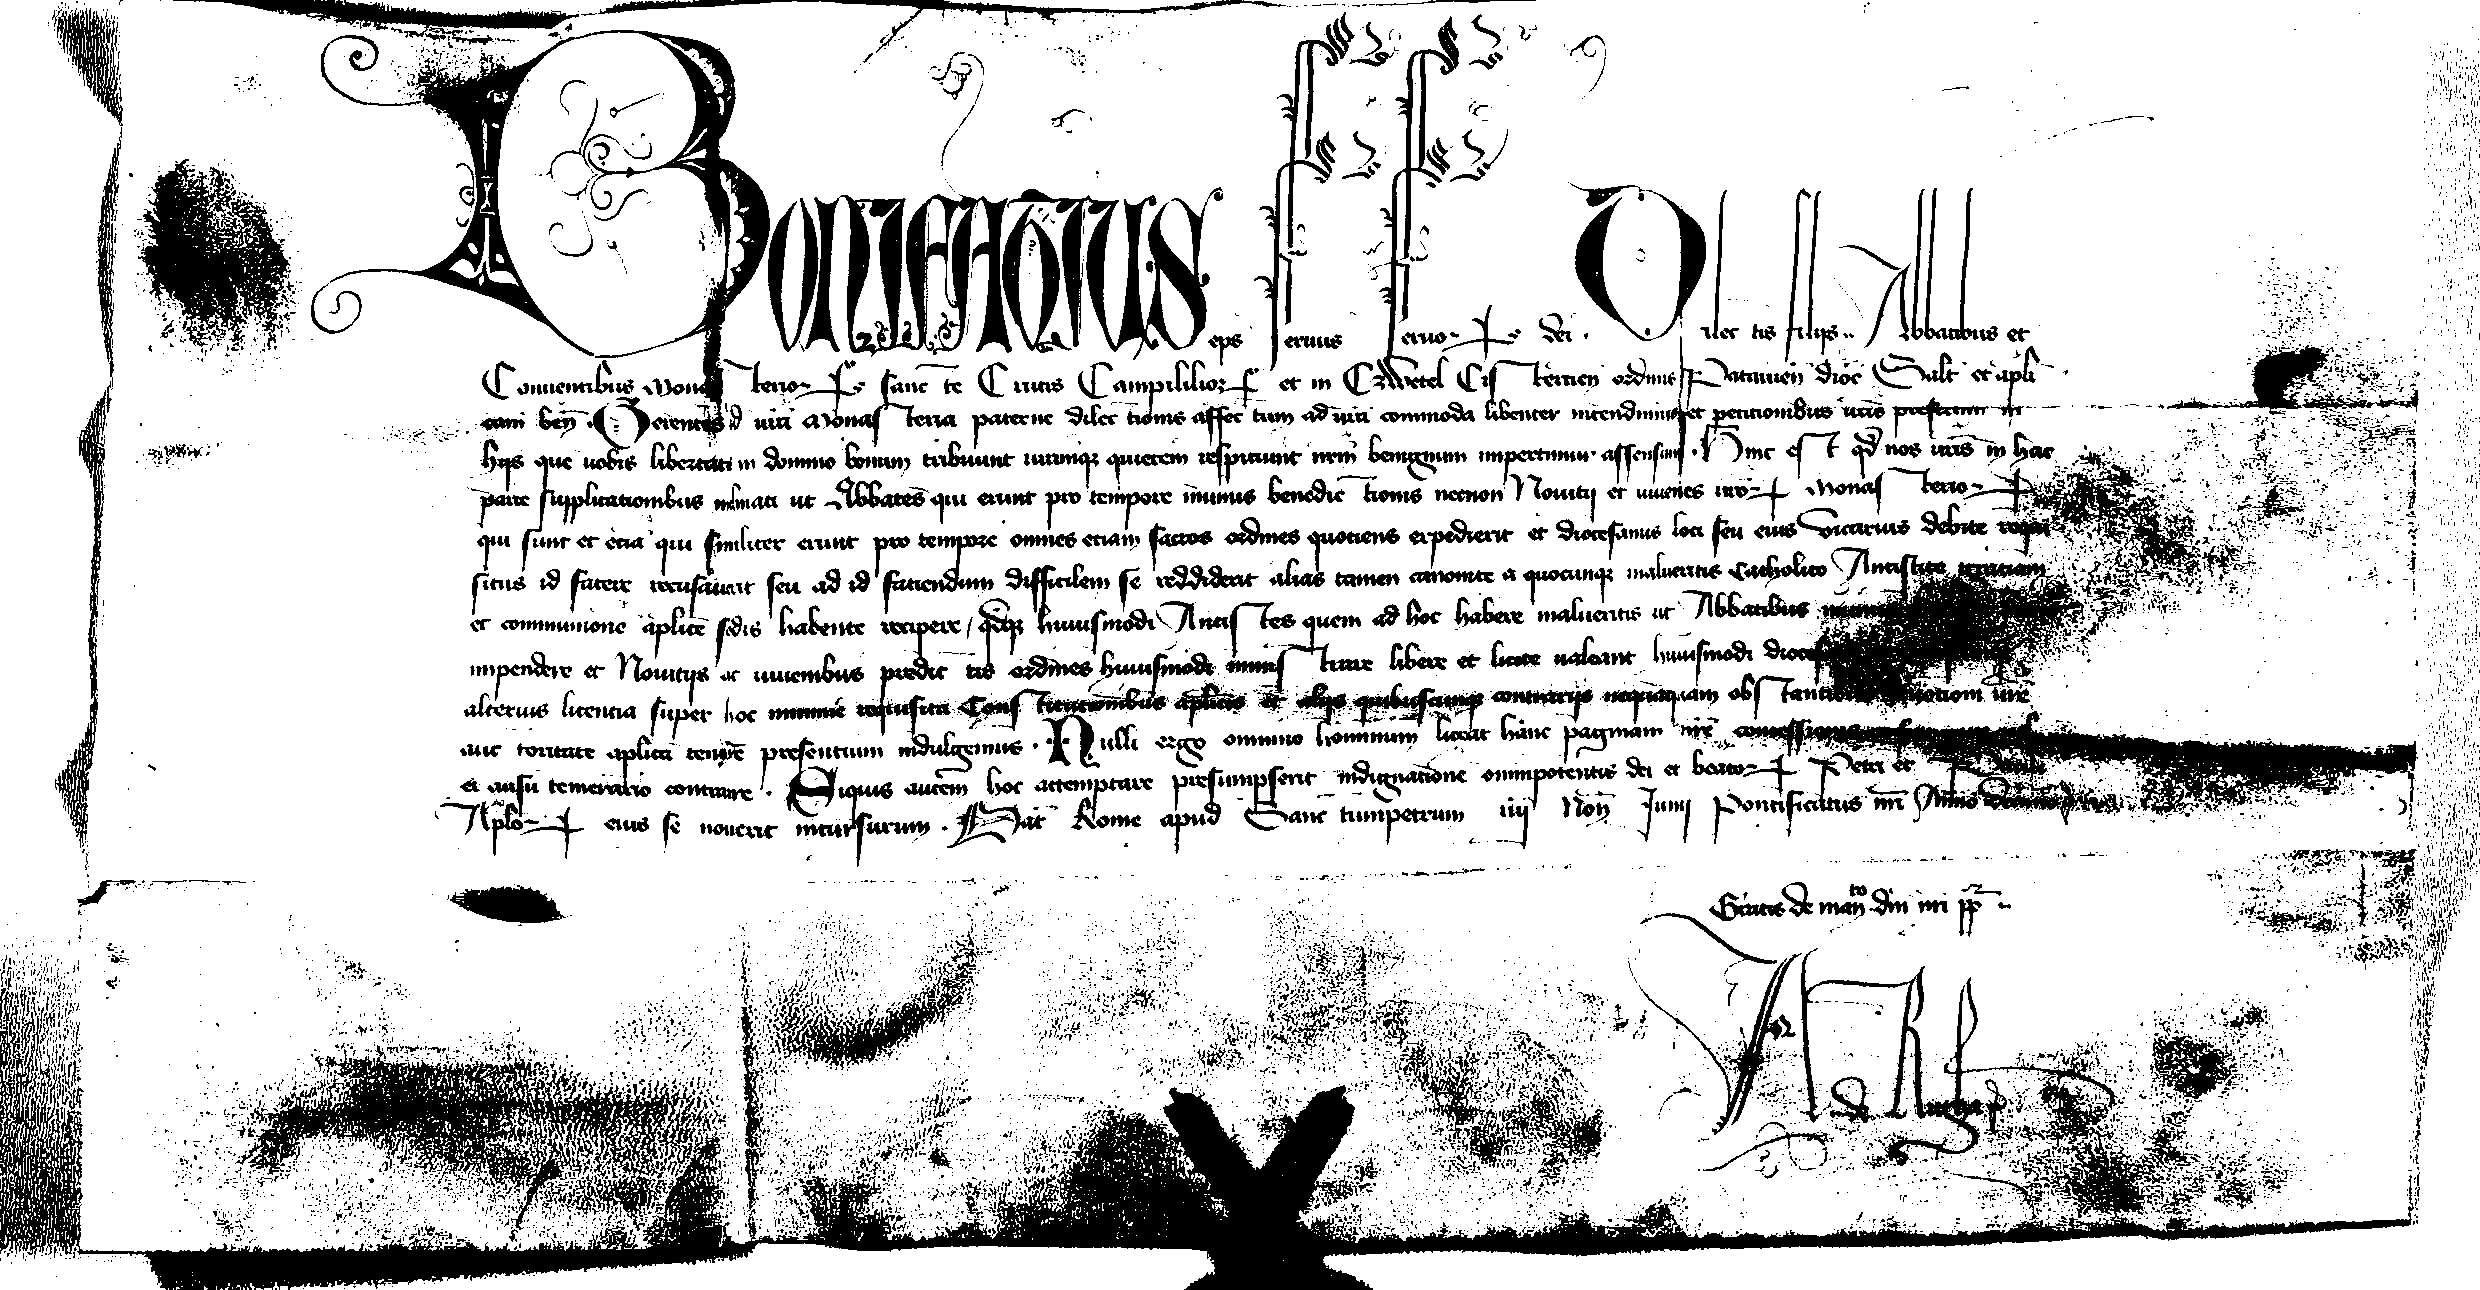 Bonifatius eps seruus seruor dei . Dilectis filijs .. Abbatibus et
Conuentibus Monasterior sancte Crucis Campililior et in Czwetel Cistercien ordinis Patauien dioc Salt et apli
cam ben . Gerentes ad vra Monasteria paterne dilectionis affectum ad vra commoda libenter intendimus et petitionibus vris presertim in
hijs que uobis libertatem in domino bonum tribuunt uirimqz quietem respiciunt nrm benignum impertimur assensum . Hinc est qd nos vris in hac
parte supplicationibus inclinati ut Abbates qui erunt pro tempore munus benedictionis necnon Nouitij et iuuenes vror Monasterior
qui sunt et etia qui similiter erunt pro tempore omnes etiam sacros ordines quotiens expedierit et diocesanus loci seu eius Vicarius debite requi
situs id facere recusauerit seu ad id faciendum difficilem se reddiderit alias tamen canonice a quocunqz malueritis Catholico Antistite gratiam
et communione aplice sedis habente recipere / qdqz huiusmodi Antistes quem ad hoc habere malueritis ut Abbatibus munus
impendere et Nouitijs ac iuuenibus predictis ordines huiusmodi ministrare libere et licite ualeant huiusmodi dioces
alterius licentia super hoc minime requisita Constitutionibus aplicis et alijs quibuscunqz contrarijs nequaquam obstantibus deuotioni vre
auctoritate aplica tenore presentium indulgemus . Nulli ergo omnino hominum liceat hanc paginam nre concessionis infringere uel
ei ausu temerario contraire . Siquis autem hoc attemptare presumpserit indignatione omnipotentis dei et beator Petri et Pauli
Aplor eius se nouerit incursurum . Dat Rome apud Sanctumpetrum iiij Non Junij Pontificatus nri Anno
Gratis de mandto dni nri pp ..
de